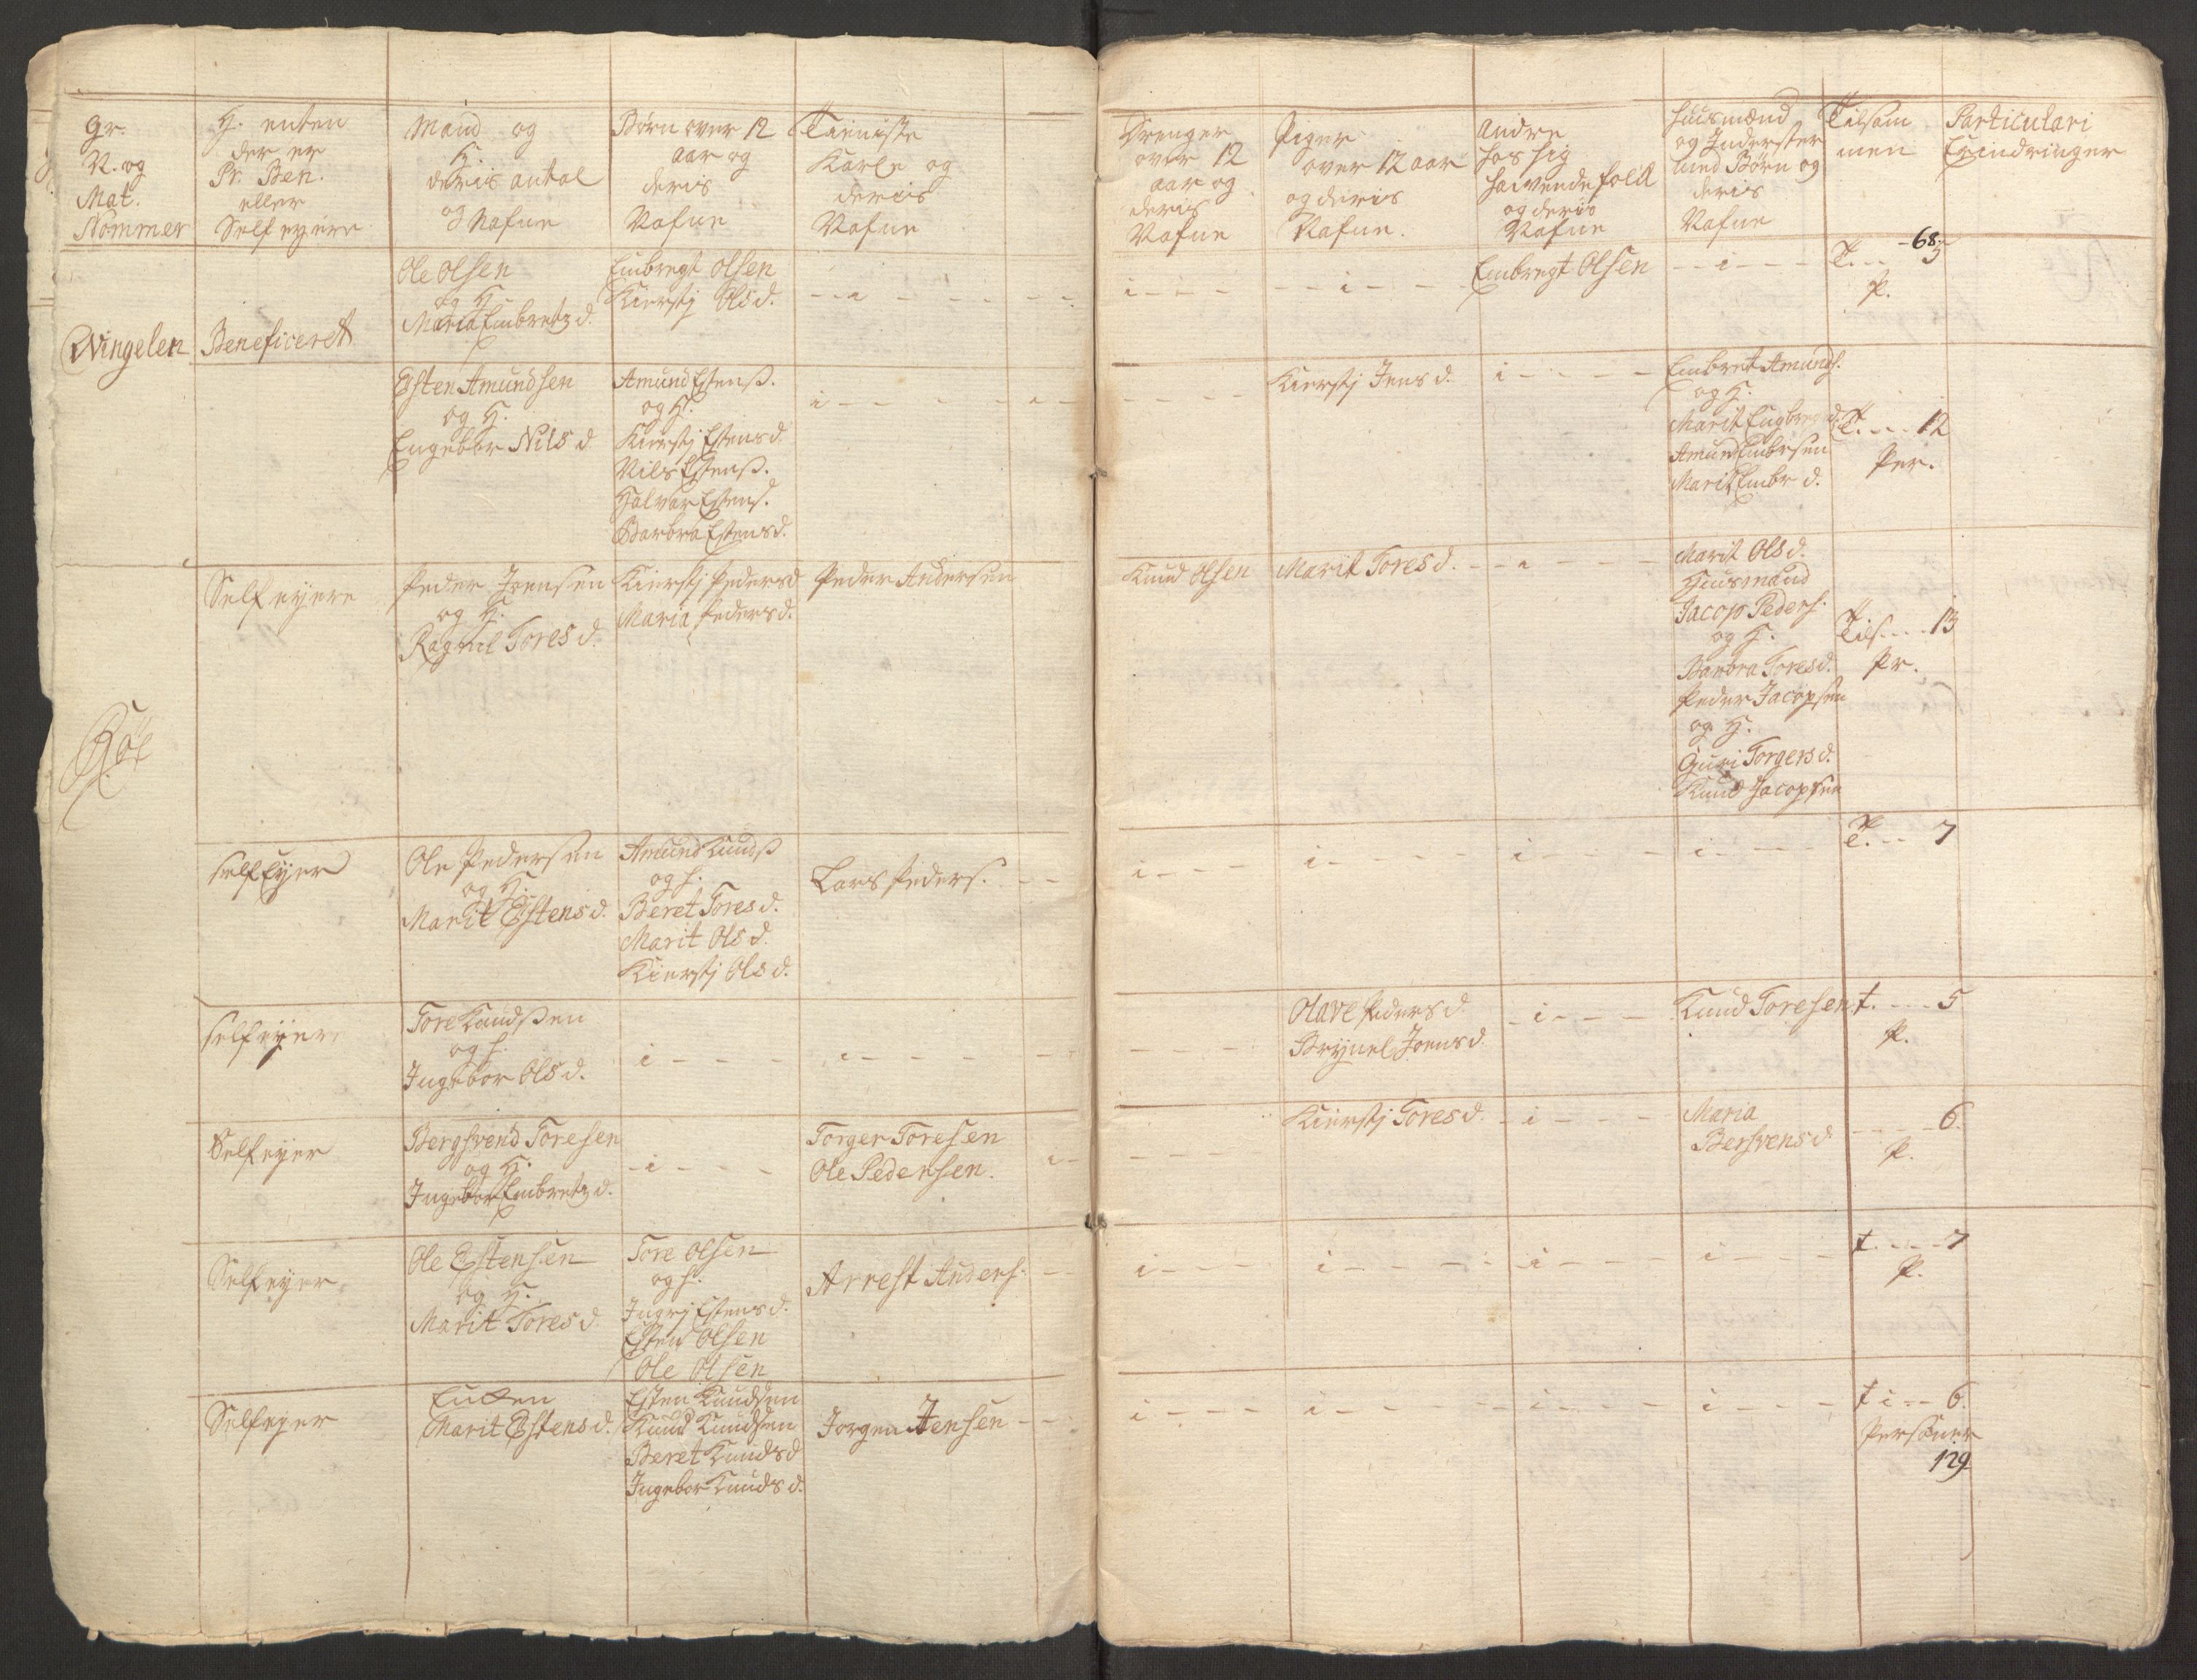 gr.
N. og
Mat.
Nommer
H. enten
der er
Pr. Ben.
eller
Selfeyere
Mand og
H.
deris antal
og Nafne
Børn over 12
aar og
deris
Nafne
Tieniste
Karle og
deris
Nafne
Drenger
over 12
aar og
deris
Nafne
Piger
over 12 aar
og deris
Nafne.
Andre
hos sig
hawende folck
og deris
Nafne
Huusmænd
og Inderster
med Børn og
deris
Nafne
Tilsam
men
Particulari
Erindringer
Wingelen
Beneficeret
Ole Olsen
og H.
Maria Embretz d.
Embregt Olsen
Kierstj Ols d.
Embregt Olsen
68
T. - - 5
P.
Esten Amundsen
og H.
Engebor Nils d
Amund Estenß.
og H.
Kierstj Estens d.
Nils Estenß.
Halvar Estens.
Barbra Estens d.
Kierstj Jens d.
Embret Amunds.
og H.
Marit Engbregd d.
Amund Embrsen
Marit Embr d.
T. - - 12
Per.
Röe
Selfeyere
Peder Joensen
og H.
Ragnil Tores d.
Kierstj Peders d
Maria Peders d.
Peder Andersen
Knud Olsen
Marit Tores d.
Marit Ols d.
Huusmand
Jacop Peders.
og H.
Barbra Tores d.
Peder Jacopsen
og H.
Guri Torgers d.
Knud Jacopsen
Tils - - - 13
Pr.
selfEyer
Ole Pedersen
og H.
Marit Estens d.
Amund Knudß
og h.
Beret Tores d.
Marit Ols d.
Kierstj Ols d.
Lars Peders.
T. - - 7
selfeyer
Tore Knudßen
og h.
Ingebor Ols d.
Olave Peders d.
Brynel Joens d.
Knud Toresen
t. - - - 5
P.
Selfeyer
Bergsvend Toresen
og H.
Ingebor Embretz d.
Torger Toresen
Ole Pedersen.
Kierstj Tores d.
Maria
Bersvens d
- - - - 6.
P.
Selfeyer
Ole Estensen
og H.
Marit Tores d.
Tore Olsen
og h.
Ingrj Estens d.
Esten Olsen
Ole Olsen
Arrest Anders.
t. - - - 7
P.
Selfeyer
Encken
Marit Estens d.
Esten Knudsen
Knud Knudsen
Beret Knuds d
Ingebor Knuds d.
Jorgen Jensen
t i - - 6.
Personer
129